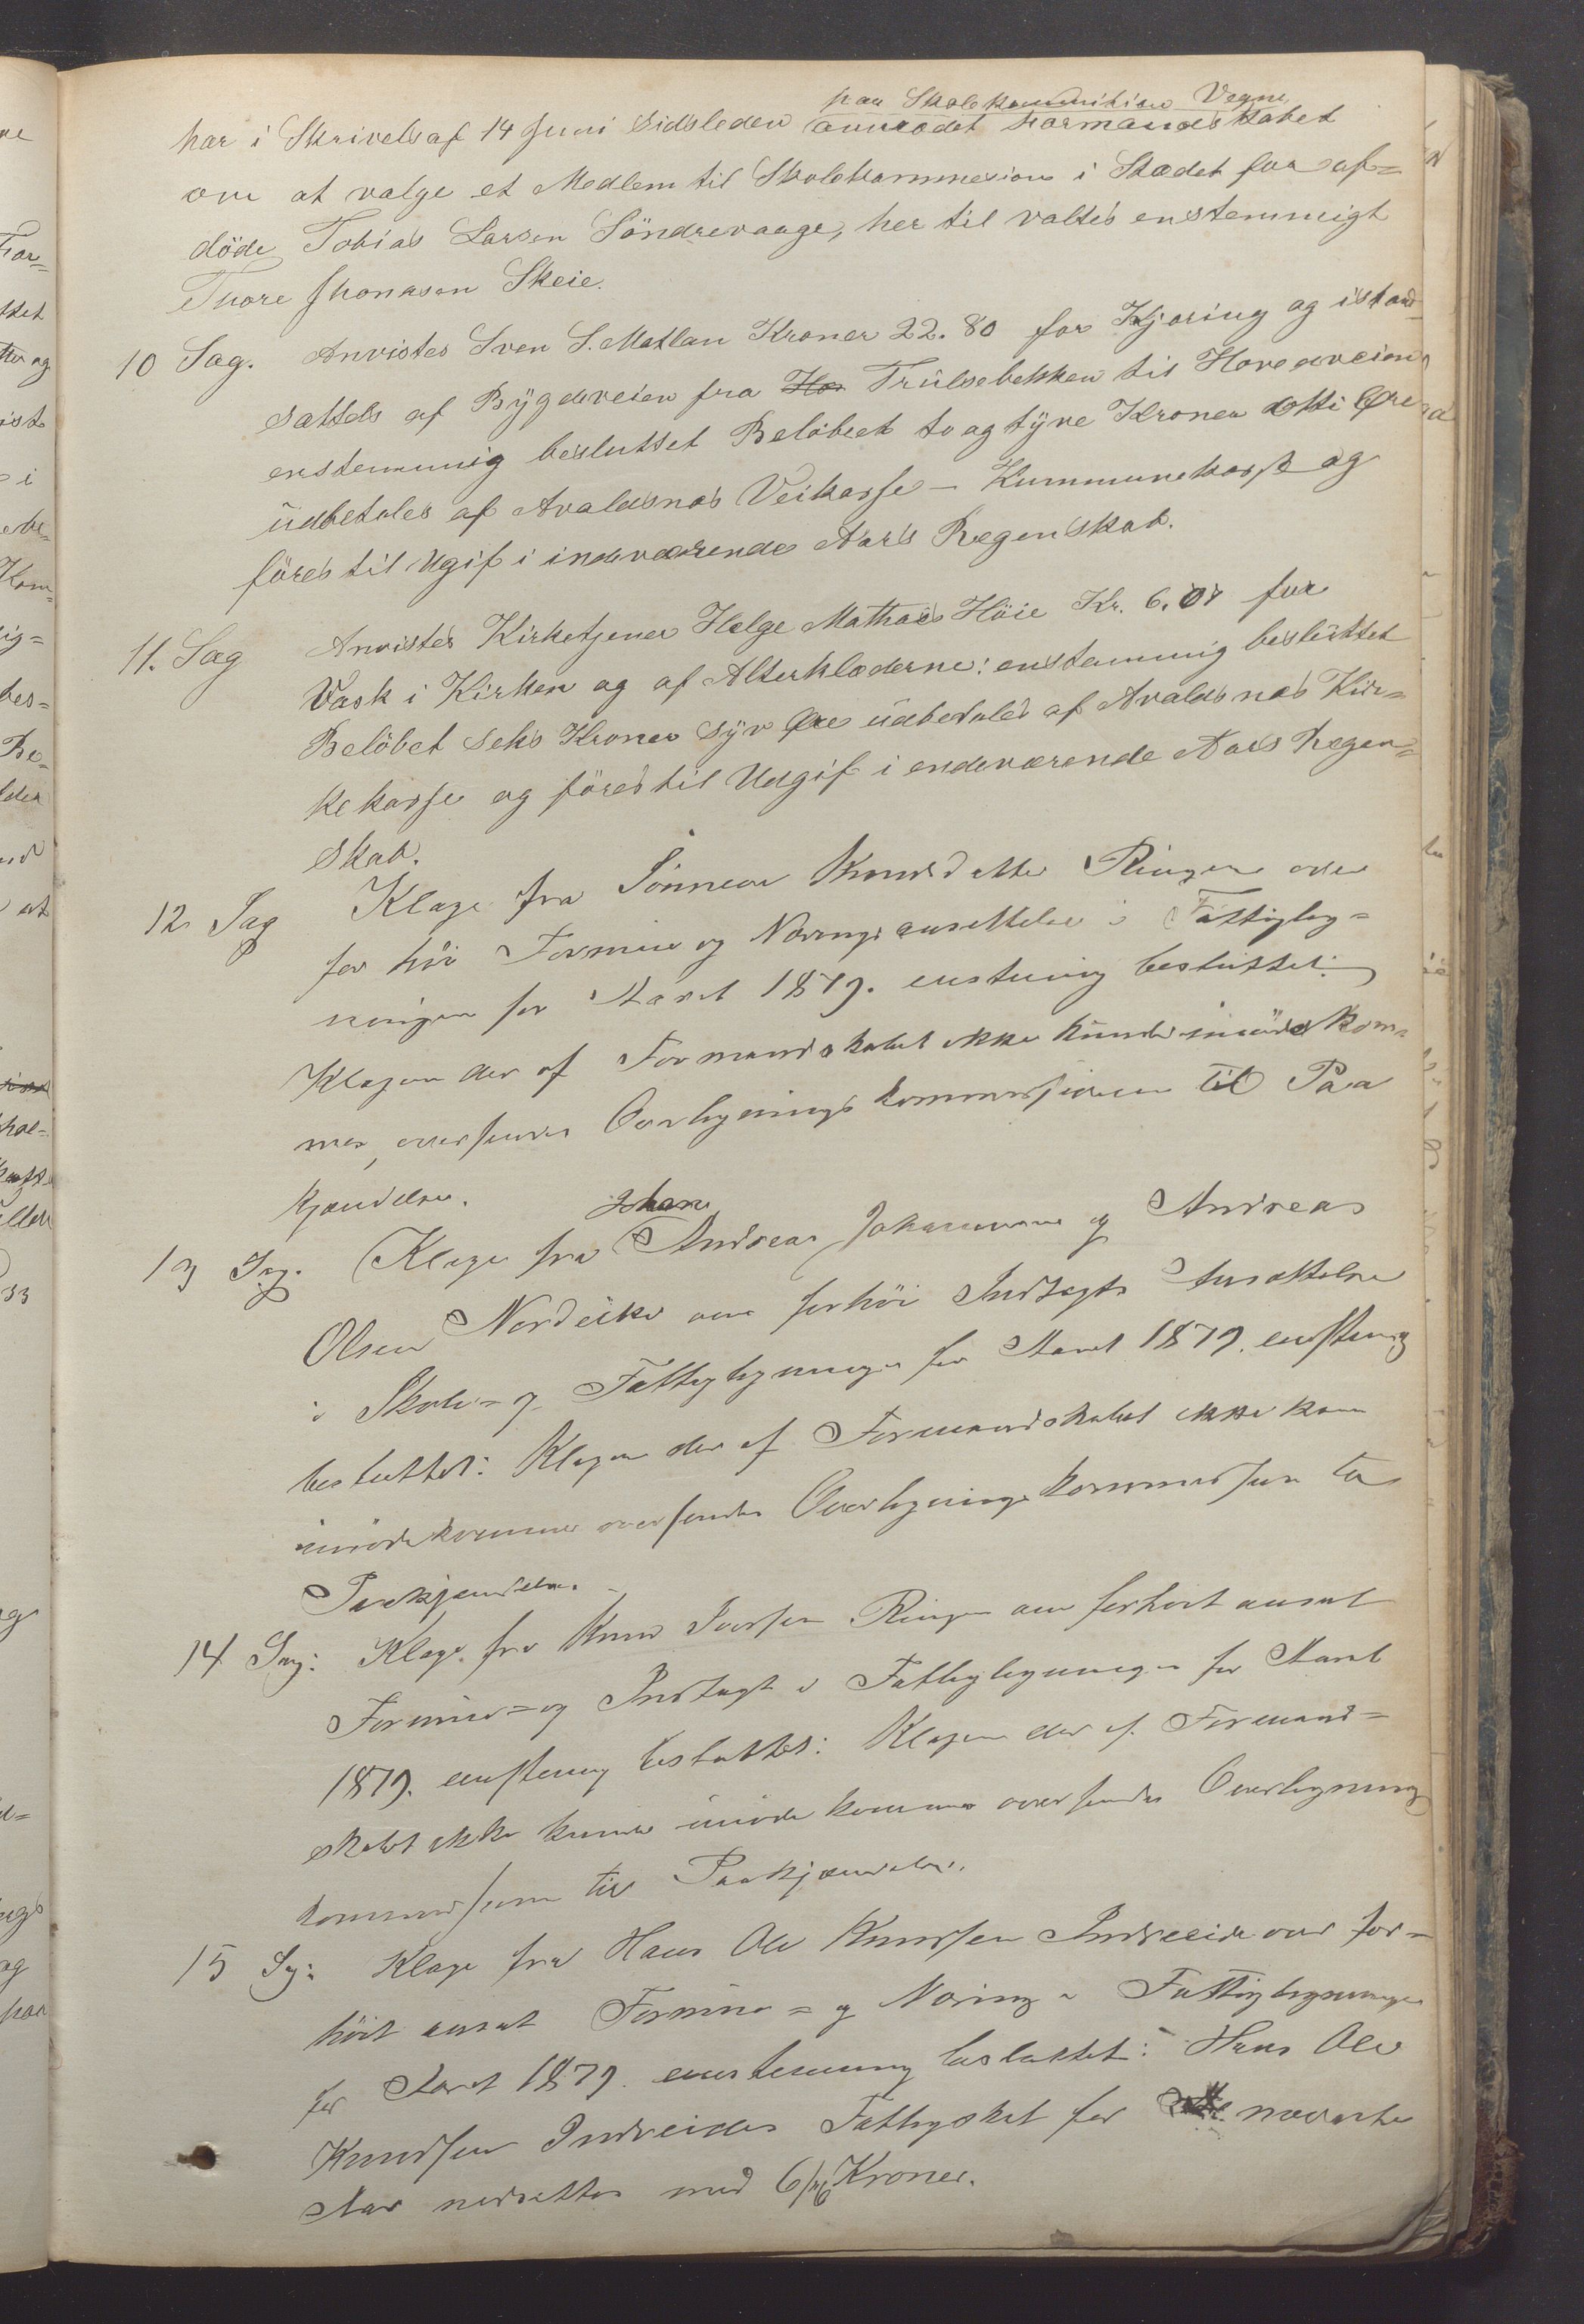 paa Skolekommitiens Vegne
har i Skrivels af 14 Juni sidsleden anmodet Formandskabet
om at valge et Medlem til Skolekommesion i Stædet for af=
döde Tobias Larsen Söndrevaage, her til valtes enstemmigt
Thore Jhonasen Skeie.
10 Sag. Anvistes Sven S. Matlan Kroner 22.80 for Kjöring og istand
sattels af Bygdeveien fra Ho Trulsebekken til Hovedveien
enstemmig besluttet Belöbet to og tyve Kroner otti Öre
udbetales af Avaldsnæs Veikasse - Kummunekasse og
föres til Ugif i indeværende Aars Regenskab.
11. Sag Anvistes Kirketjener Helge Mathæs Höie Kr. 6.07 for
Vask i Kirken og af Alterklæderne: enstemmig besluttet
Belöbet seks Kroner syv Öre udbetales af Avaldsnæs Kir=
kekasse og föres til Udgif i endeværende Aars Regen=
skab.
12 Sag Klage fra Sönneva Knudsdatter Ringen over
for höi Formue og Nærings ansettelse i Fattiglig=
ningen for Aaret 1879. enstemig besluttet:
Klagen der af Formandskabet ikke kunde imödekom=
mes, oversendes Overlignings kommissionen til Paa
kjendelse.
Johan
13 Sag. Klage fra Andreas Johannesen og Andreas
Olsen Nordeike over forhöi Indtægts Ansættelse
i Skole= og Fattigligningen for Aaret 1879. enstemig
besluttet: Klagen der af Formandskabet ikke kan
imödekommes oversendes Overligningskommissionen til
Paakjendelse.
14 Sag: Klage fra Knud Iversen Ringen over forhöit ansat
Formue= og Indtægt i Fattigligningen for Aaret
1879. enstemig besluttet: Klagen der af Formand=
skabet ikke kunde imödekommes oversendes Overlignings
kommissionen til Paakjendelse.
15 Sag: Klage fra Hans Ole Knudsen Indreeide over for=
höit ansat Formue= og Næring i Fattigligningen
for Aaret 1879. enstemmig besluttet: Hans Ole
Knudsen Indreeides Fattigskat for nævnte
Aar nedsættes med 6/16 Kroner.